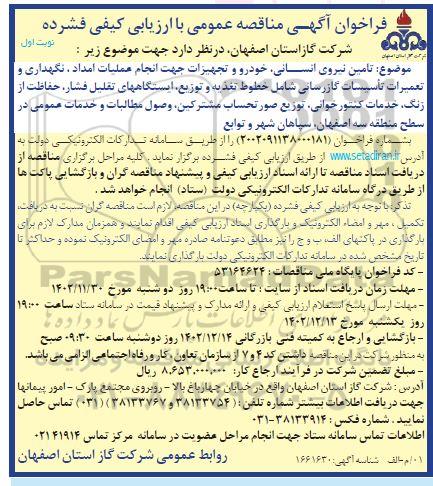 فراخوان آگهـی مناقصه عمومی با ارزیابی کیفی فشرده
نوبت اول
شرکت گاز استان اصفهان
شرکت گازاستان اصفهان، درنظر دارد جهت موضوع زیر :
موضوع: تامین نیروی انسـانی، خودرو و تجهیزات جهت انجام عملیات امداد ، نگهداری و
تعمیرات تاسیسات گازرسانی شامل خطوط تغذیه و توزیع، ایستگاههای تقلیل فشار، حفاظت از
زنگ، خدمات کنتورخوانی، توزیع صورتحساب مشترکین، وصول مطالبات و خدمات عمومی در
سطح منطقه سه اصفهان، سپاهان شهر و توابع
بشماره فراخـوان (۲۰۰۲۰۹۱۱۳۸۰۰۰۱۸۱) را از طریـق سـامانه تـدارکات الکترونیکـی دولت به
آدرس www.setadiran.ir از طریق ارزیابی کیفی فشرده برگزار نماید . کلیه مراحل برگزاری مناقصه از
دریافت اسناد مناقصه تا ارائه اسناد ارزیابی کیفی و پیشنهاد مناقصه گران و بازگشایی پاکت ها
از طریق درگاه سامانه تدارکات الکترونیکی دولت (ستاد) انجام خواهد شد .
تذکر: با توجه به ارزیابی کیفی فشرده (یکپارچه) در این مناقصه، لازم است مناقصه گران نسبت به دریافت،
تکمیل ، مهر و امضاء الکترونیک و بارگذاری اسناد ارزیابی کیفی اقدام نمایند و همزمان مدارک لازم برای
بارگذاری در پاکتهای الف، ب و ج را نیز مطابق دعوتنامه صادره مهر و امضای الکترونیک نموده و حداکثر تا
تاریخ مشخص شده در سامانه تدارکات الکترونیکی دولت بارگذاری نمایند.
- کد فراخوان پایگاه ملی مناقصات : ۵۳۱۶۴۶۲۴
- مهلت زمان دریافت اسناد از سایت : تا ساعت ۱۹:۰۰ روز دوشنبه مورخ ۱۴۰۲/۱۱/۳۰
- مهلت ارسال پاسخ استعلام ارزیابی کیفی و ارائه مدارک و پیشنهاد قیمت در سامانه ستاد ساعت ۱۹:۰۰
روز یکشنبه مورخ ۱۴۰۲/۱۲/۱۳
- بازگشایی و ارجاع به کمیته فنی بازرگانی ۱۴۰۲/۱۲/۱۴ روز دوشنبه ساعت ۰۹:۳۰ صبح
به منظور شرکت در این مناقصه داشتن کد ۴ و ۷ از سازمان تعاون، کار و رفاه اجتماعی الزامی می باشد.
- مبلغ تضمین شرکت در فرآیند ارجاع کار: ۸,۶۵۳,۰۰۰,۰۰۰ ریال
آدرس : شرکت گاز استان اصفهان واقع در خیابان چهارباغ بالا - روبروی مجتمع پارک - امور پیمانها
جهت دریافت اطلاعات بیشتر شماره تلفن : (۳۸۱۳۲۷۵۴ و ۳۸۱۳۳۷۶۷) (۰۳۱) تماس حاصل
نمایید . شماره فکس : ۳۸۱۳۳۹۱۴-۰۳۱
اطلاعات تماس سامانه ستاد جهت انجام مراحل عضویت در سامانه مرکز تماس ۴۱۹۱۴-۰۲۱
۰۱/م-الف شناسه آگهی: ۱۶۶۱۶۳۰
روابط عمومی شرکت گاز استان اصفهان